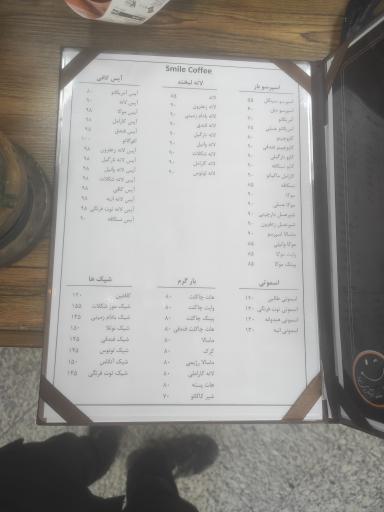 Smile Coffee
اسپرسو بار
اسپرسو سینگل ۵۵
اسپرسو دبل ۶۰
آمریکانو ۷۰
آمریکانو عسلی ۷۵
کاپوچینو ۸۰
کاپوچینو فندقی ۹۰
کاپو نارگیلی ۹۰
کاپو نسکافه ۹۰
کارامل ماکیاتو ۹۰
نسکافه ۸۵
موکا ۹۰
موکا عسلی ۹۰
شیرعسل دارچینی ۹۰
شیرعسل زعفرون ۹۰
ماسالا اسپرسو ۹۰
موکا وانیلی ۸۵
وایت موکا ۸۵
پینک موکا ۸۵
لاته لبخند
لاته ۸۵
لاته زعفرون ۹۰
لاته بادام زمینی ۹۰
لاته فندق ۹۰
لاته نارگیل ۹۰
لاته وانیل ۹۰
لاته شکلات ۹۰
لاته کارامل ۹۰
لاته لوتوس ۹۰
آیس کافی
آیس آمریکانو ۸۰
آیس لاته ۹۰
آیس موکا ۹۸
آیس کارامل ۹۸
آیس فندق ۹۸
آفوگاتو ۱۰۰
آیس لاته زعفرون ۹۸
آیس لاته نارگیل ۹۸
آیس لاته وانیل ۹۸
آیس لاته شکلات ۹۸
آیس کافی ۹۸
آیس لاته انبه ۹۸
آیس لاته توت فرنگی ۹۵
آیس نسکافه ۹۰
اسموتی
اسموتی طالبی ۱۲۰
اسموتی توت فرنگی ۱۲۰
اسموتی هندوانه ۱۲۰
اسموتی انبه ۱۳۰
بار گرم
هات چاکلت ۸۰
وایت چاکلت ۸۰
پینک چاکلت ۸۰
هات چاکلت فندقی ۸۰
ماسالا ۸۰
کرک ۸۰
ماسالا رژیمی ۸۰
لاته کاراملی ۸۰
هات پسته ۸۰
شیر کاکائو ۷۰
شیک ها
کافئین ۱۴۰
شیک موز شکلات ۱۵۵
شیک بادام زمینی ۱۴۵
شیک نوتلا ۱۵۰
شیک فندقی ۱۴۵
شیک لوتوس ۱۴۵
شیک آناناس ۱۵۰
شیک توت فرنگی ۱۴۵